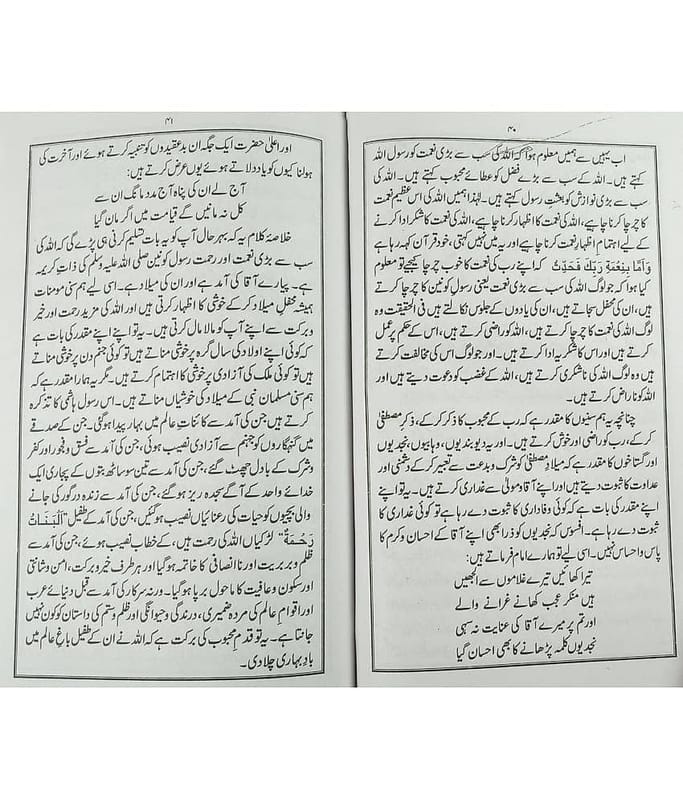 ۴۰
اب یہیں سے ہمیں معلوم ہوا کہ اللہ کی سب سے بڑی نعمت کو رسول اللہ
کہتے ہیں۔ اللہ کے سب سے بڑے فضل کو عطائے محبوب کہتے ہیں۔ اللہ کی
سب سے بڑی نوازش کو بعثتِ رسول کہتے ہیں۔ لہٰذا ہمیں اس عظیم نعمت
کا چرچا کرنا چاہیے، اللہ کی نعمت کا اظہار کرنا چاہیے، اللہ کی نعمت کا شکر ادا کرنے
کے لیے اہتمامِ اظہارِ نعمت کرنا چاہیے اور یہ میں نہیں کہتی، خود قرآن کہہ رہا ہے
وَاَمَّا بِنِعْمَةِ رَبِّكَ فَحَدِّثْ کہ اپنے رب کی نعمت کا خوب چرچا کیجیے تو معلوم
ہوا کہ جو لوگ اللہ کی سب سے بڑی نعمت یعنی رسول کونین کا چرچا کرتے
ہیں، ان کی محفل سجاتے ہیں، ان کی یادوں کے جلوس نکالتے ہیں فی الحقیقت وہ
لوگ اللہ کی نعمت کا چرچا کرتے ہیں، اللہ کو راضی کرتے ہیں، اس کے حکم پر عمل
کرتے ہیں اور اس کا شکریہ ادا کرتے ہیں۔ اور جو لوگ اس کی مخالفت کرتے
ہیں وہ لوگ اللہ کی ناشکری کرتے ہیں، اللہ کے غضب کو دعوت دیتے ہیں اور
اللہ کو ناراض کرتے ہیں۔
چنانچہ یہ ہم سنیوں کا مقدر ہے کہ رب کے محبوب کا ذکر کر کے، ذکرِ مصطفیٰ
کر کے، رب کو راضی اور خوش کرتے ہیں۔ اور یہ دیوبندیوں، وہابیوں، نجدیوں
اور گستاخوں کا مقدر ہے کہ میلادِ مصطفیٰ کو شرک و بدعت سے تعبیر کر کے دشمنی اور
عداوت کا ثبوت دیتے ہیں اور اپنے آقا و مولیٰ سے غداری کرتے ہیں۔ یہ تو اپنے
اپنے مقدر کی بات ہے کہ کوئی وفاداری کا ثبوت دے رہا ہے تو کوئی غداری کا
ثبوت دے رہا ہے۔ افسوس کہ نجدیوں کو ذرا بھی اپنے آقا کے احسان و کرم کا
پاس و احساس نہیں۔ اسی لیے تو ہمارے امام فرماتے ہیں:
تیرا کھائیں تیرے غلاموں سے الجھیں
ہیں منکر عجب کھانے غرانے والے
اور تم پر میرے آقا کی عنایت نہ سہی
نجدیوں کلمہ پڑھانے کا بھی احسان گیا
۴۱
اور اعلیٰ حضرت ایک جگہ ان بدعقیدوں کو تنبیہ کرتے ہوئے اور آخرت کی
ہولناکیوں کو یاد دلاتے ہوئے یوں عرض کرتے ہیں:
آج لے ان کی پناہ آج مدد مانگ ان سے
کل نہ مانیں گے قیامت میں اگر مان گیا
خلاصۂ کلام یہ کہ بہرحال آپ کو یہ بات تسلیم کرنی ہی پڑے گی کہ اللہ کی
سب سے بڑی نعمت اور رحمت رسول کونین صلی اللہ علیہ وسلم کی ذاتِ کریمہ
ہے۔ پیارے آقا کی آمد ہے اور ان کی میلاد ہے۔ اسی لیے ہم سنی مومنات
ہمیشہ محفلِ میلاد کر کے خوشی کا اظہار کرتی ہیں اور اللہ کی مزید رحمت اور خیر
و برکت سے اپنے آپ کو مالا مال کرتی ہیں۔ یہ تو اپنے اپنے مقدر کی بات ہے
کہ کوئی اپنے اولاد کی سال گرہ پر خوشی مناتے ہیں تو کوئی جنم دن پر خوشی مناتے
ہیں تو کوئی ملک کی آزادی پر خوشی کا اہتمام کرتے ہیں۔ مگر یہ ہمارا مقدر ہے کہ
ہم سنی مسلمان نبی کے میلاد کی خوشیاں مناتے ہیں۔ اس رسول ہاشمی کا تذکرہ
کرتے ہیں جن کی آمد سے کائناتِ عالم میں بہار پیدا ہو گئی۔ جن کے صدقے
میں گنہگاروں کو جہنم سے آزادی نصیب ہوئی، جن کی آمد سے فسق و فجور اور کفر
و شرک کے بادل چھٹ گئے، جن کی آمد سے تین سو ساٹھ بتوں کے پجاری ایک
خدائے واحد کے آگے سجدہ ریز ہو گئے، جن کی آمد سے زندہ درگور کی جانے
والی بچیوں کو حیات کی رعنائیاں نصیب ہو گئیں، جن کی آمد کے طفیل "اَلْبَنَاتُ
رَحْمَةٌ" لڑکیاں اللہ کی رحمت ہیں، کے خطاب نصیب ہوئے، جن کی آمد سے
ظلم و بربریت اور ناانصافی کا خاتمہ ہو گیا اور ہر طرف خیر و برکت، امن و شانتی
اور سکون و عافیت کا ماحول برپا ہو گیا۔ ورنہ سرکار کی آمد سے قبل دنیائے عرب
اور اقوامِ عالم کی مردہ ضمیری، درندگی و حیوانگی اور ظلم و ستم کی داستان کو کون نہیں
جانتا ہے۔ یہ تو قدمِ محبوب کی برکت ہے کہ اللہ نے ان کے طفیل باغِ عالم میں
بادِ بہاری چلا دی۔